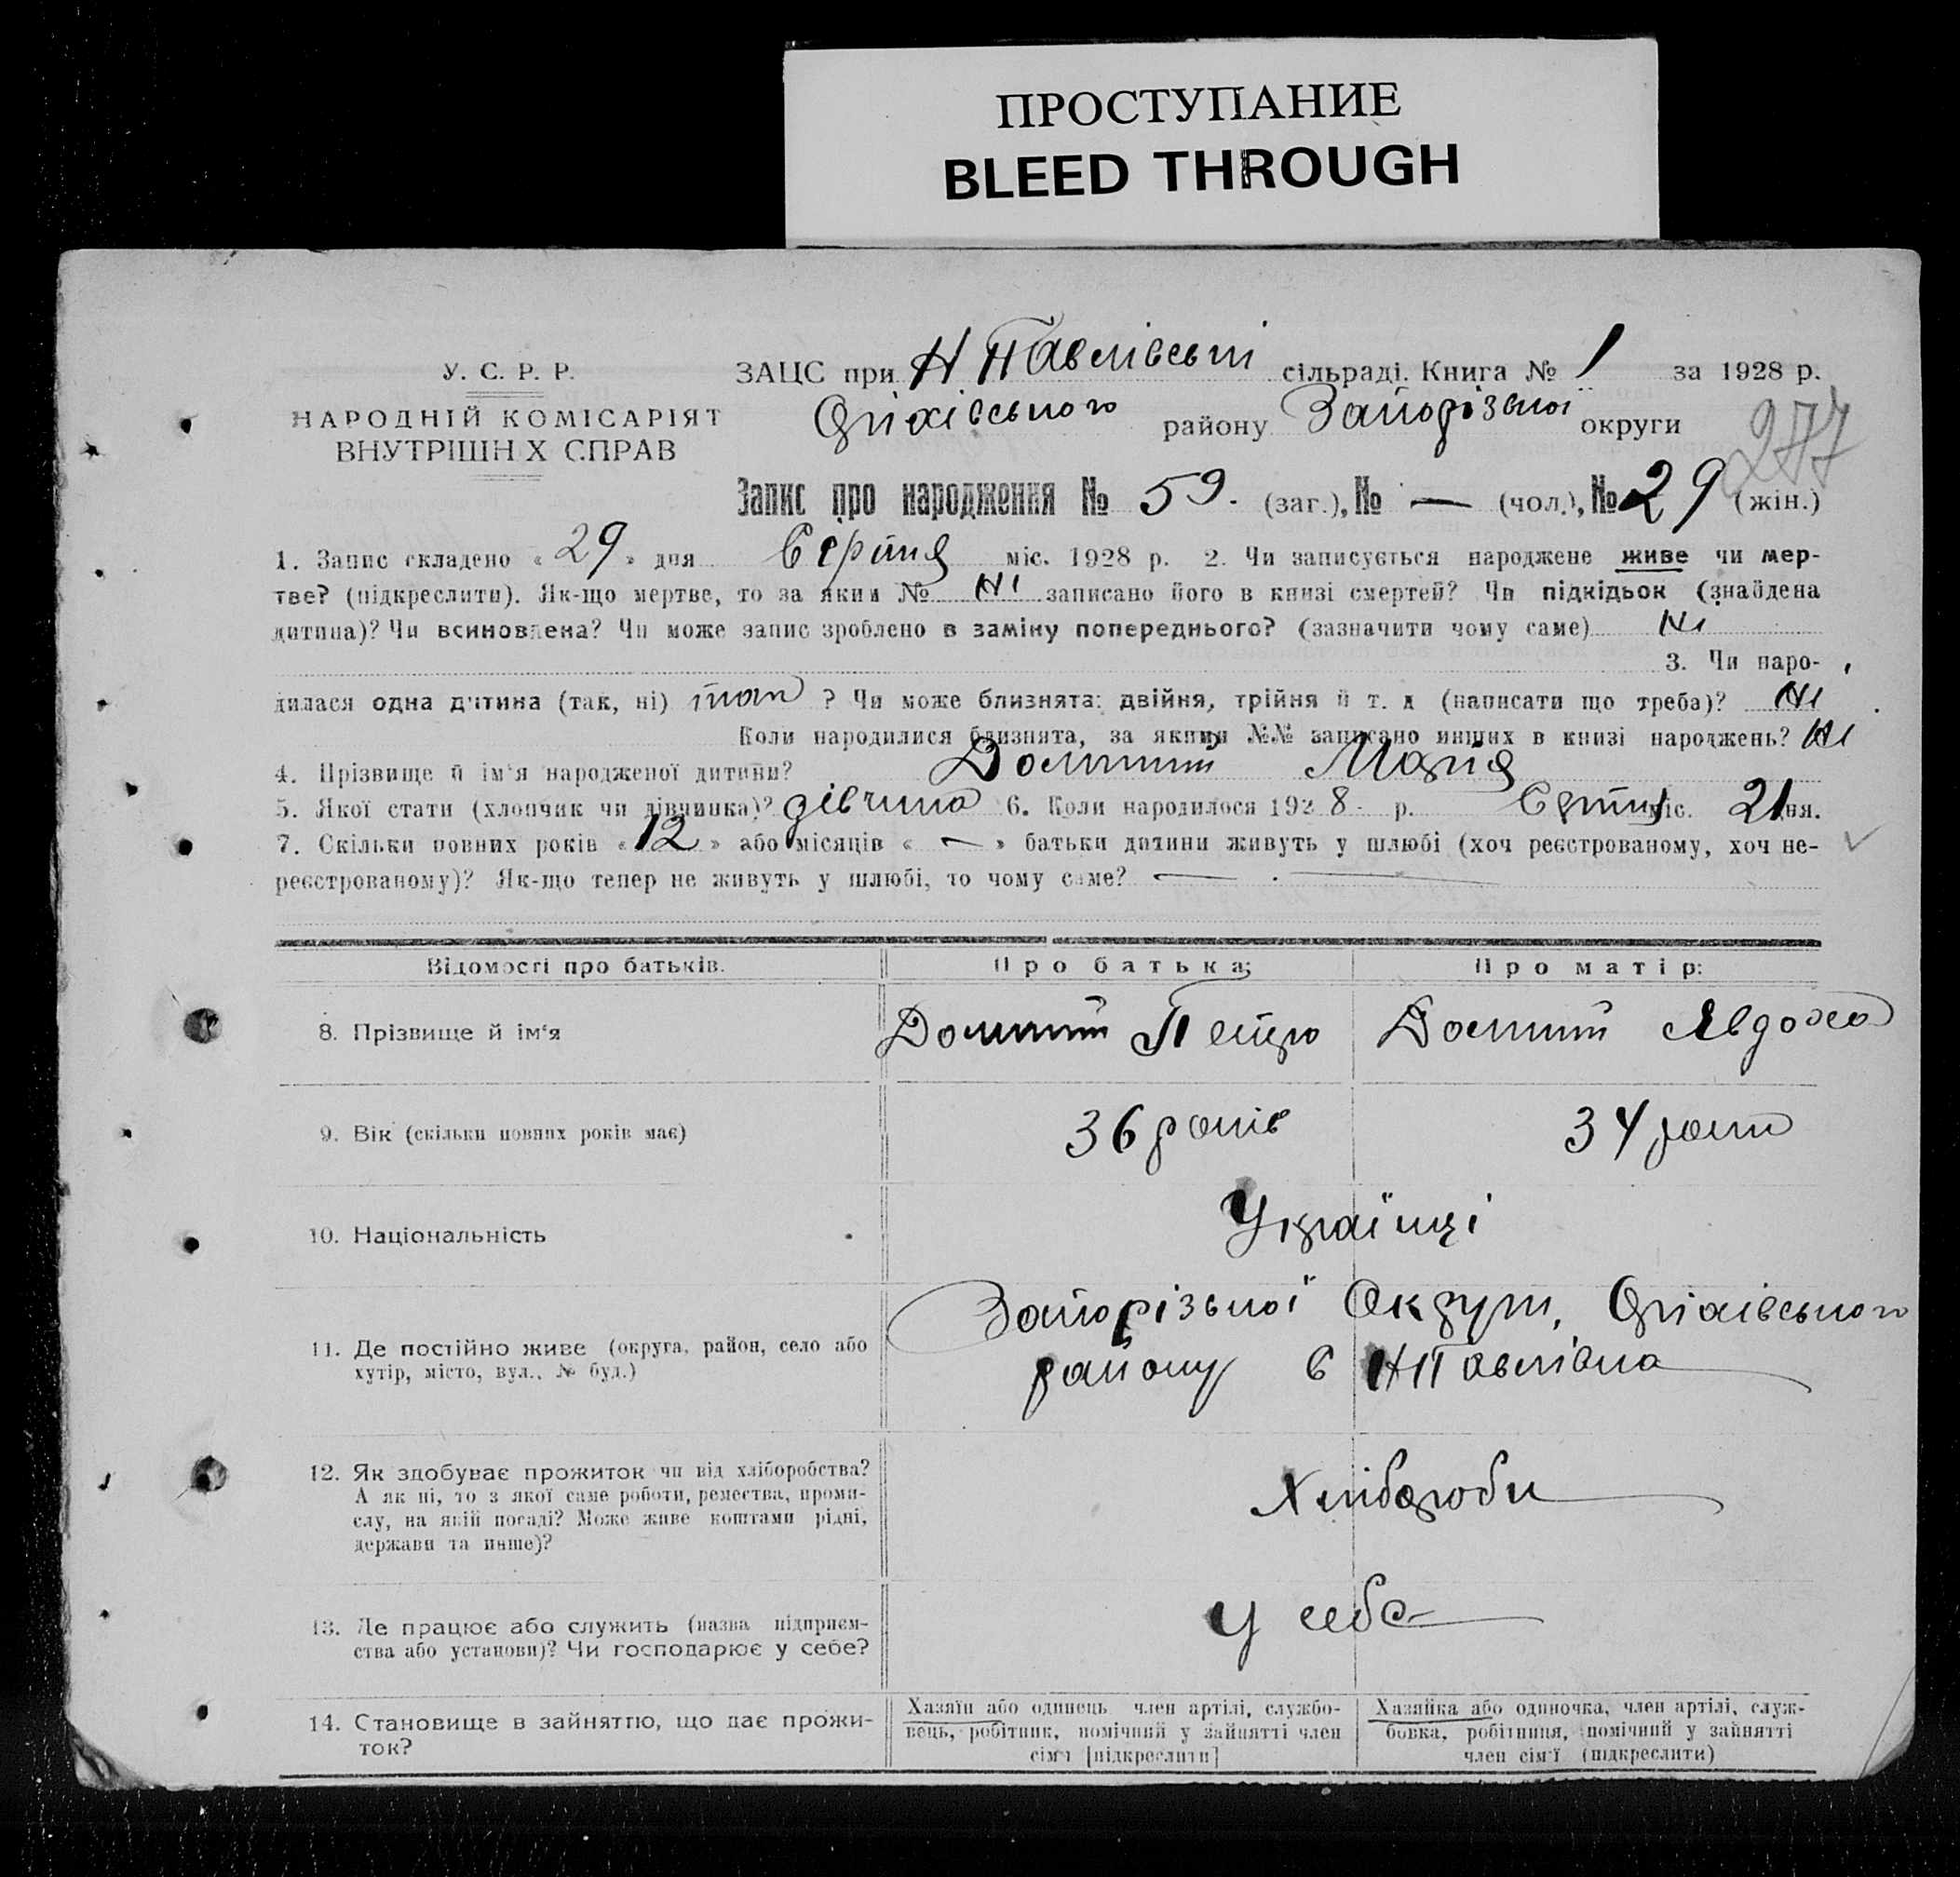 ПРОСТУПАНИЕ
BLEED THROUGH
У. С. Р. Р.
НАРОДНІЙ КОМІСАРІЯТ
ВНУТРІШН Х СПРАВ
ЗАЦС при Н Павлівські сільраді. Книга № 1 за 1928 р.
Оріхівського району Запорізької округи
277
Запис про народження № 59. (заг.), № — (чол.), № 29 (жін.)
1. Запис складено « 29 » дня Серпня міс. 1928 р. 2. Чи записується народжене живе чи мер-
тве? (підкреслити). Як-що мертве, то за яким № Ні записано його в книзі смертей? Чи підкідьок (знайдена
дитина)? Чи всиновлена? Чи може запис зроблено в заміну попереднього? (зазначити чому саме) Ні
3. Чи наро-
дилася одна дитина (так, ні) так ? Чи може близнята: двійня, трійня й т. д (написати що треба)? Ні
Коли народилися близнята, за якими №№ записано инших в книзі народжень? Ні
4. Прізвище й ім'я народженої дитини? Марія
5. Якої стати (хлопчик чи дівчинка)? дівчина 6. Коли народилося 192 8 р. Серпня міс. 21 дня.
7. Скільки повних років « 12 » або місяців « — » батьки дитини живуть у шлюбі (хоч реєстрованому, хоч не-
реєстрованому)? Як-що тепер не живуть у шлюбі, то чому саме? —
Відомості про батьків. Про батька: Про матір:
8. Прізвище й ім'я Петро Явдоха
9. Вік (скільки повних років має) 36 років 34 роки
10. Національність Українці
11. Де постійно живе (округа, район, село або
хутір, місто, вул., № буд.)
Запорізької Округи, Оріхівського
району с НПавлівка
12. Як здобуває прожиток чи від хліборобства?
А як ні, то з якої саме роботи, ремества, проми-
слу, на якій посаді? Може живе коштами рідні,
держави та инше)?
Хлібороби
13. Де працює або служить (назва підприєм-
ства або установи)? Чи господарює у себе?
у себе
14. Становище в зайняттю, що дає прожи-
ток?
Хазяїн або одинець член артілі, службо-
вець, робітник, помічний у зайнятті член
сім'ї [підкреслити]
Хазяйка або одиночка, член артілі, служ-
бовка, робітниця, помічний у зайнятті
член сім'ї (підкреслити)